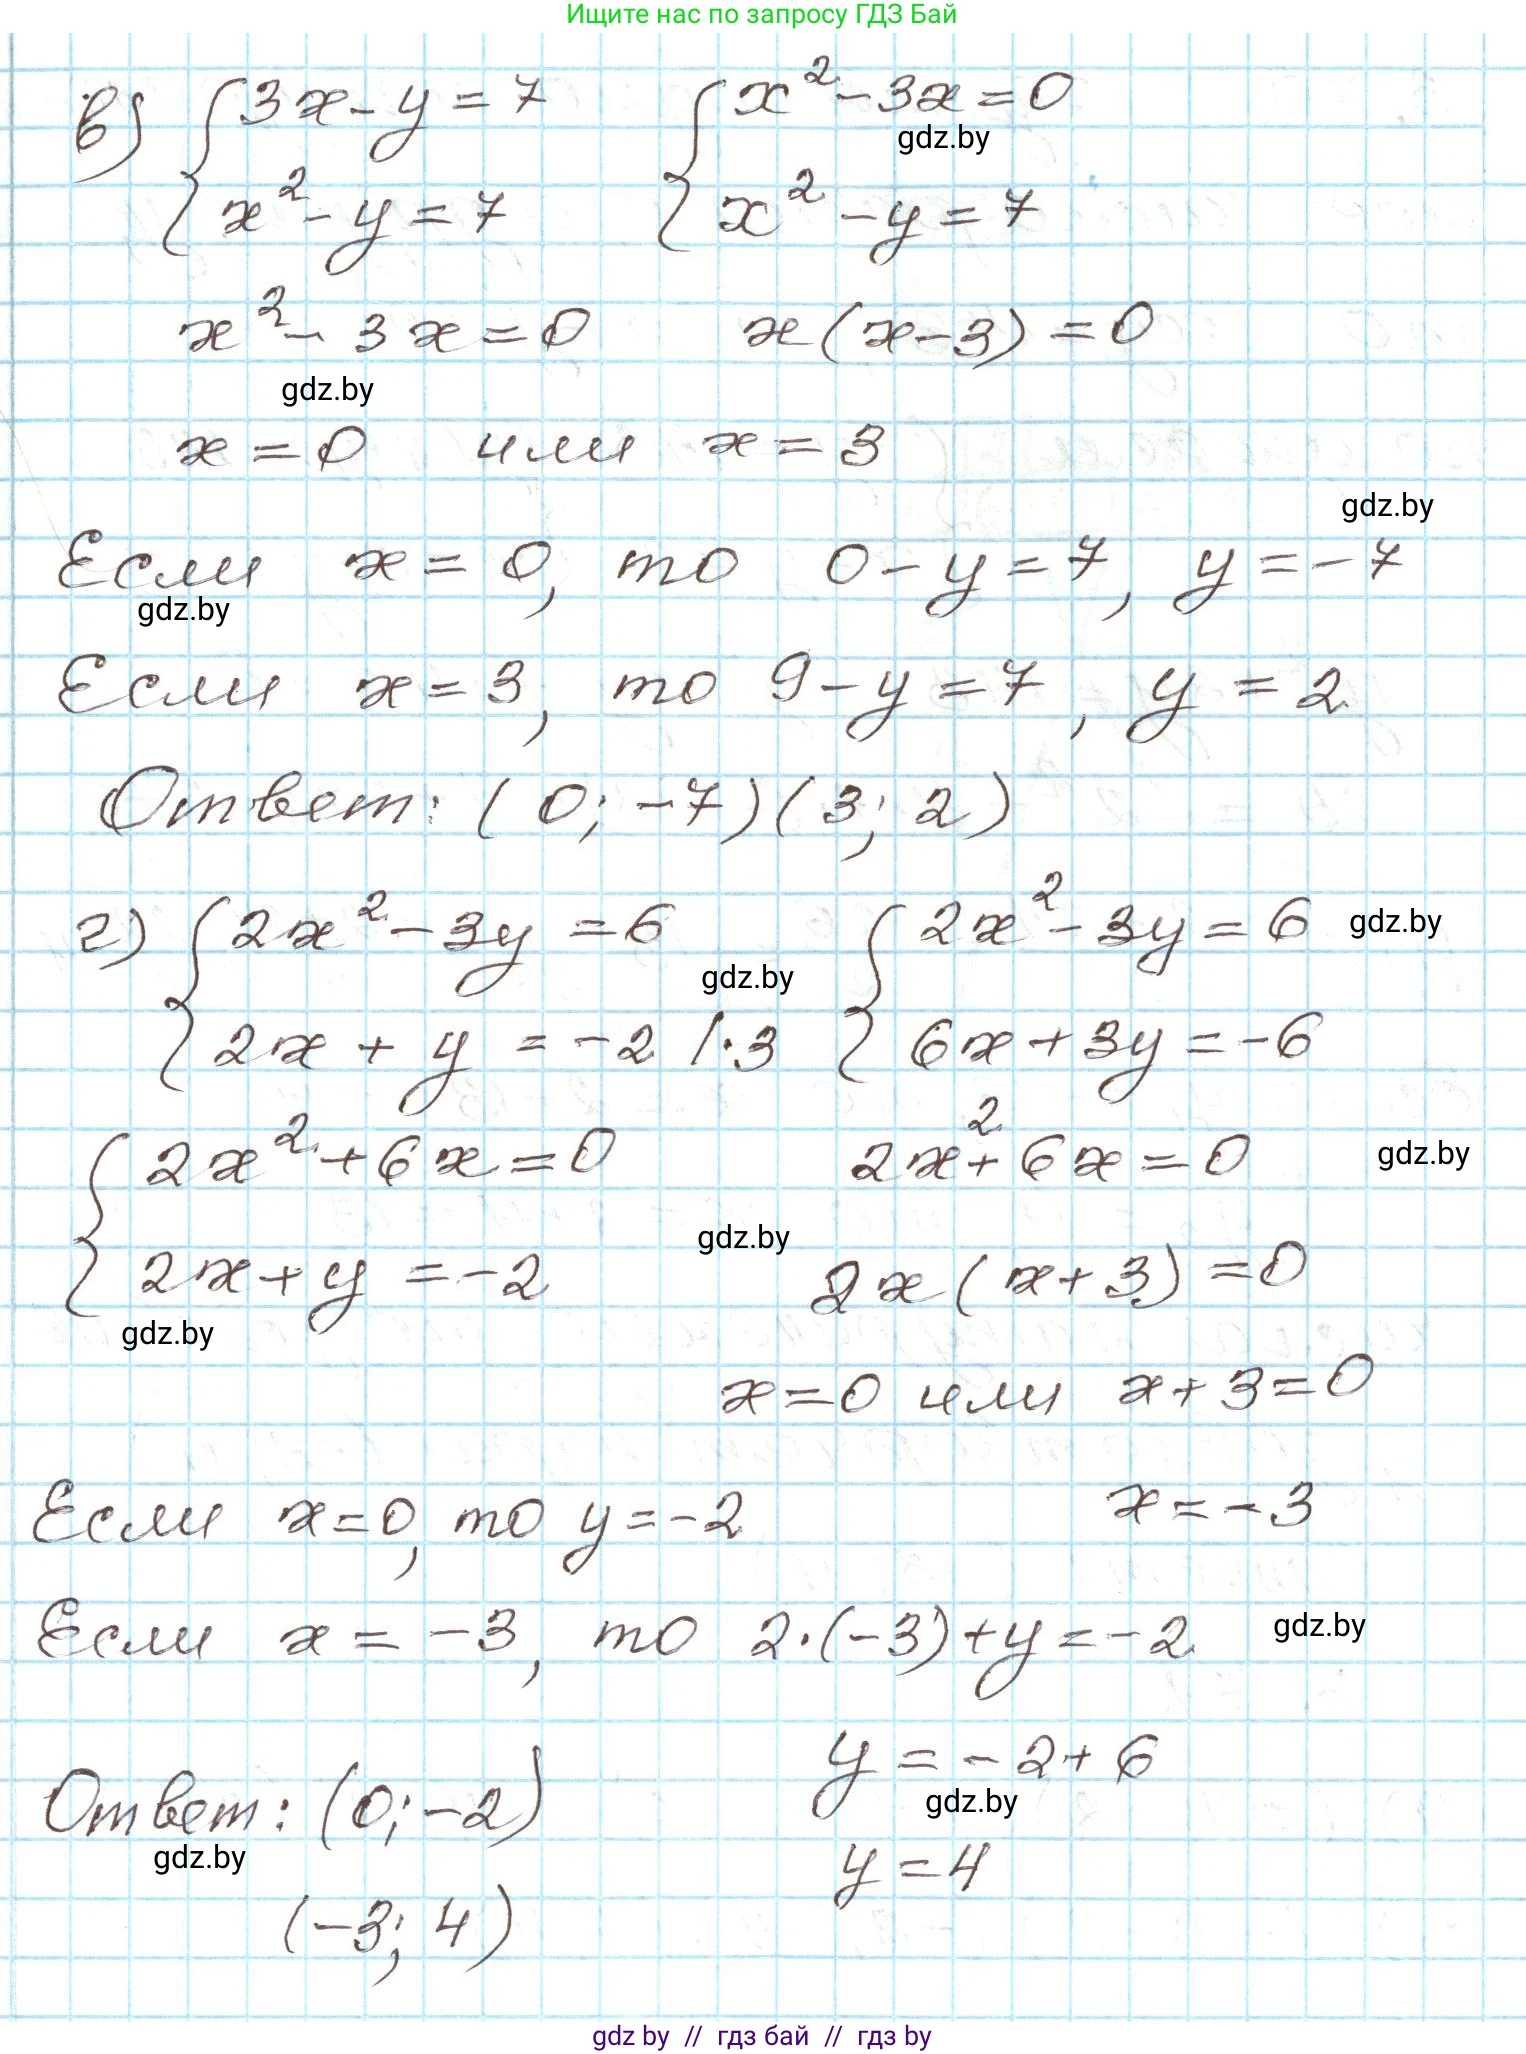 Ищите нас по запросу ГДЗ Бай
в) { 3x - y = 7 { x² - 3x = 0
gdz.by
x² - y = 7 x² - y = 7
x² - 3x = 0 x(x-3) = 0
gdz.by
x = 0 или x = 3
gdz.by
Если x = 0, то 0 - y = 7, y = -7
gdz.by
Если x = 3, то 9 - y = 7, y = 2
Ответ: (0; -7) (3; 2)
г) { 2x² - 3y = 6 { 2x² - 3y = 6 gdz.by
gdz.by
2x + y = -2 /·3 6x + 3y = -6
{ 2x² + 6x = 0 2x² + 6x = 0 gdz.by
gdz.by
2x + y = -2 2x(x+3) = 0
gdz.by
x = 0 или x + 3 = 0
Если x = 0, то y = -2 x = -3
Если x = -3, то 2·(-3) + y = -2 gdz.by
y = -2 + 6
Ответ: (0; -2) gdz.by
gdz.by y = 4
(-3; 4)
gdz by // гдз бай // гдз by